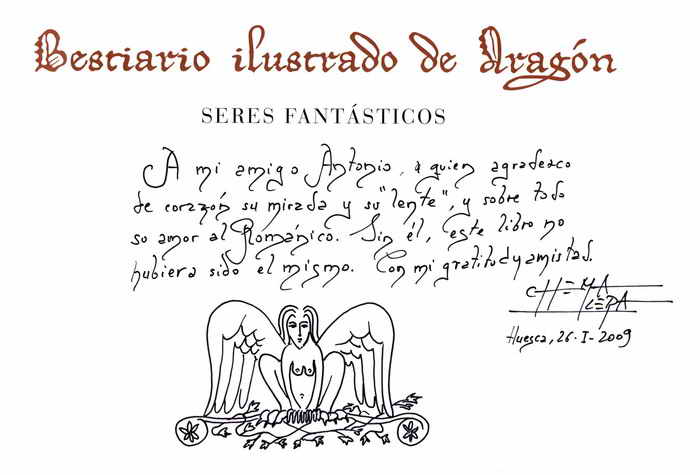 Bestiario ilustrado de Aragón
SERES FANTÁSTICOS
A mi amigo Antonio, a quien agradezco
de corazón su mirada y su "lente", y sobre todo
su amor al Románico. Sin él, este libro no
hubiera sido el mismo. Con mi gratitud y amistad.
CHEMA
LERA
Huesca, 26-I-2009